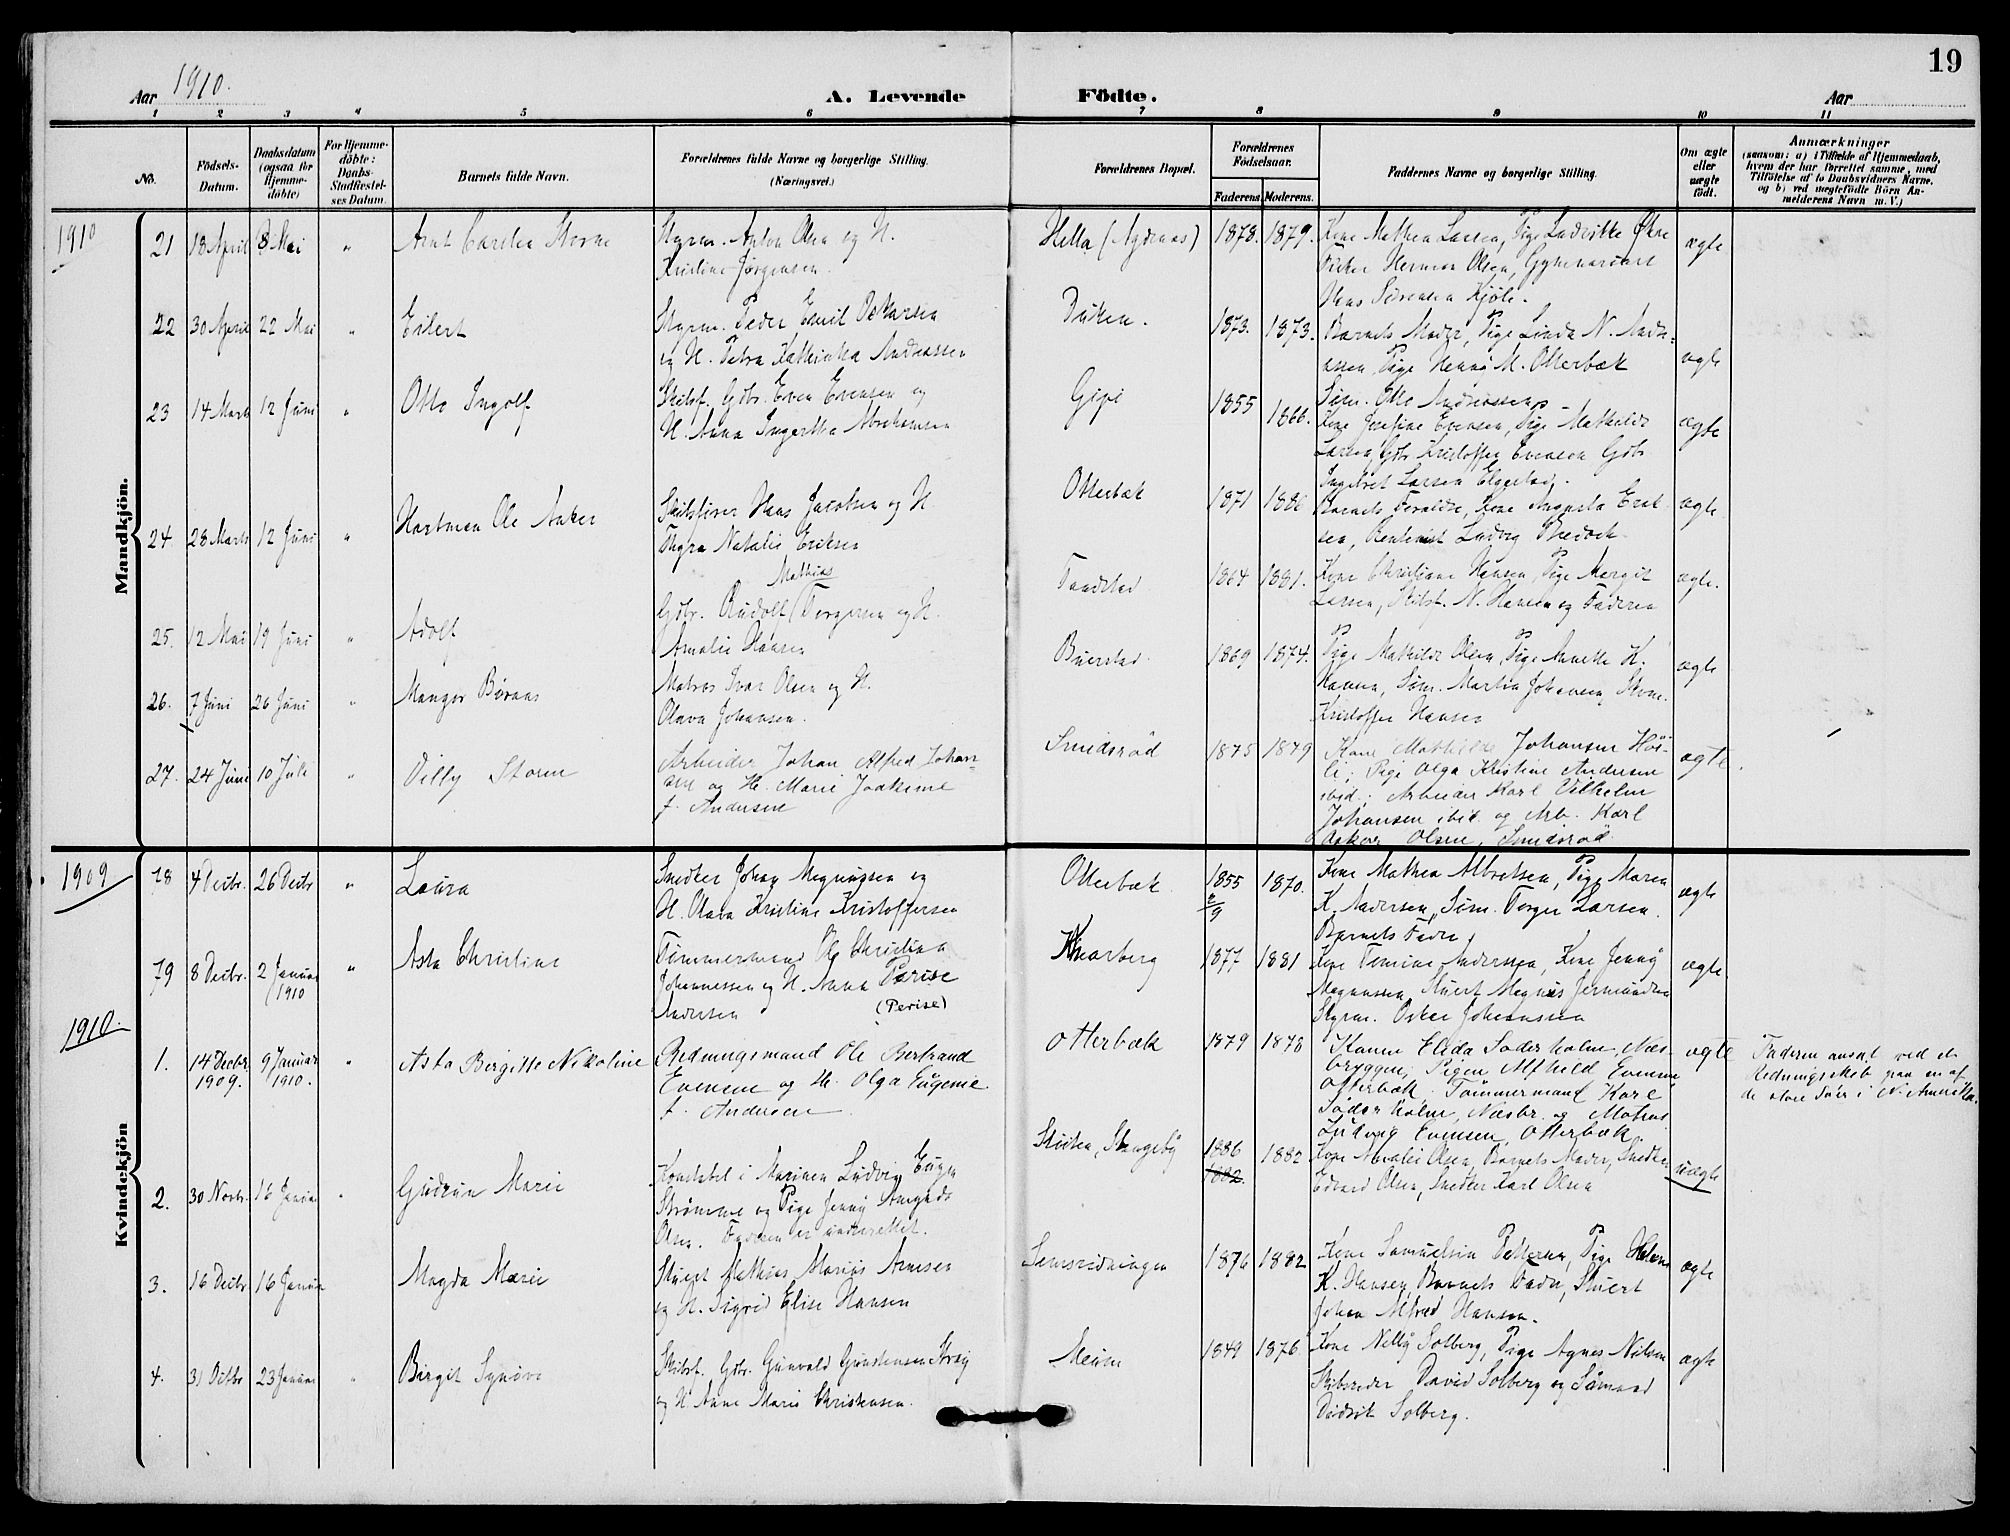 19
Aar 1910.
A. Levende Födte.
Aar
1 2 3 4 5 6 7 8 9 10 11
No.
Födsels-
Datum.
Daabsdatum
(ogsaa for
Hjemme-
döbte)
For Hjemme-
döbte:
Daabs-
Stadfæstel-
ses Datum.
Barnets fulde Navn.
Forældrenes fulde Navne og borgerlige Stilling.
(Næringsvei.)
Forældrenes Bopæl.
Forældrenes
Födselsaar.
Faderens. Moderens.
Faddernes Navne og borgerlige Stilling.
Om ægte
eller
uægte
født.
Anmærkninger
(saasom: a) i Tilfælde af Hjemmedaab,
hvem der har forrettet samme, med
Tilföielse af to Daabsvidners Navne,
og b) ved uægtefödte Börn An-
melderens Navn m. V.)
Mandkjön.
1910
21 18 April 8 Mai " Arnt Carelen
Styrm. Anton Olsen og H.
Kristine Jørgensen.
Hella (Agdenæs) 1878. 1879.
Kone Mathea Larsen, Pige Ludvikke
Fisker Herman Olsen,
Hans Sørensen Kjøle.
ægte
22 30 April 22 Mai " Eilert
Styrm. Peder Emil Oskarsen
og H. Petra Kathinka Andreassen
Duken. 1873. 1873.
Barnets Moder, Pige Linda N. Andre-
assen, Pige M. Otterbæk
Søm. Otto Andreassen
ægte
23 14 Marts 12 Juni " Otto Ingolf
Skibsf. Gbr. Even Evensen og
H. Anna Ingertha Abrahamsen
Gipö 1855 1866.
Kone Josefine Evensen, Pige Mathilde
Larsen, Gbr Kristoffer Evensen Gbr
Ingebret Larsen Elgestad.
ægte
24. 28 Marts 12 Juni " Hartman Ole Anker
Skibsfører Hans Jacobsen og H.
Thyra Natalie Eriksen
Otterbæk 1871 1886
Barnets Forældre, Kone Augusta Erik-
sen, Ludvig Bredoch
ægte
25. 12 Mai 19 Juni " Adolf
Mathias
Gbr. Rudolf Torgersen og H.
Amalie Hansen
Tandstad 1864 1881.
Kone Christiane Hansen, Pige Margit
Larsen, Skibsf. N. Hansen og Faderen
ægte.
26. 7 Juni 26 Juni " Mangor
Matros Ivar Olsen og H.
Olava Johansen.
Buerstad 1869 1874.
Pige Mathilde Olsen, Pige Anette K.
Hansen, Søm. Martin Johansen,
Kristoffer Hansen
ægte
27. 24 Juni 10 Juli " Villy Storm
Arbeider Johan Alfred Johan-
sen og H. Marie Joakime
f. Andersen
Smidsröd 1875 1879
Kone Mathilde Johansen Höi-
li; Pige Olga Kristine Andersen
ibid.; Arbeider Karl Vilhelm
Johansen ibid og Arb. Karl
Oskar Olsen, Smidsröd.
ægte.
Kvindekjön
1909
18 4 Decbr. 26 Decbr " Laura
Snedker Johan Magnussen og
H. Olava Kristine Kristoffersen
Otterbæk 1855 2/9 1870.
Kone Mathea Albretsen, Pige Maren
K. Andersen, Søm. Torger Larsen.
Barnets Fader
ægte
19 8 Decbr. 2 Januar 1910 " Asta Christine
Tømmermand Ole Christian
Johannessen og H. Anna Perise
Andersen (Perise)
Knarberg 1877 1881
Kone Tomine Andersen, Kone Jenny
Magnussen, Stuert Magnus Jermundsen
Styrm. Oskar Johanssen
ægte
1910.
1. 14 Decbr. 1909. 9 Januar 1910. " Asta Birgitte Nikoline
Redningsmand Ole Bertrand
Evensen og H. Olga Eugenie
f. Andersen.
Otterbæk 1879 1878
Konen Elida Söderholm, Næs-
bryggen, Pigen Alfhild Evensen
Otterbæk Tømmermand Karl
Söderholm, Næsbr. og Matros
Ludvig Evensen, Otterbæk.
ægte
Faderen ansat ved et
Redningsskib paa en af
de store Søer i N. Amerika.
2. 30 Novbr. 16 Januar " Gudrun Marie
Konstabel i Marinen Ludvig Eugen
Strømme og Pige Jenny Amanda
Olsen. Faderen er underrettet.
Skuten, Stangeby 1886 1882. 1882
Kone Amalie Olsen, Barnets Moder, Snedker
Edvard Olsen, Snedker Karl Olsen
uægte
3. 16 Decbr 16 Januar Magda Marie
Stuert Mathias Marius Arnesen
og H. Sigrid Elise Hansen
Semsridningen 1876 1882
Kone Samueline Pettersen, Pige Helene
K. Hansen, Barnets Fader, Stuert
Johan Alfred Hansen.
ægte
4. 31 Octbr 23 Januar " Birgit Synøve
Skibsf. Gbr. Gunvald Gundersen Skrøj
og H. Anne Marie Christensen.
Meum 1849 1876
Kone Nelly Solberg, Pige Agnes Nilsen
Skibsreder David Solberg og Sømand
Didrik Solberg.
ægte